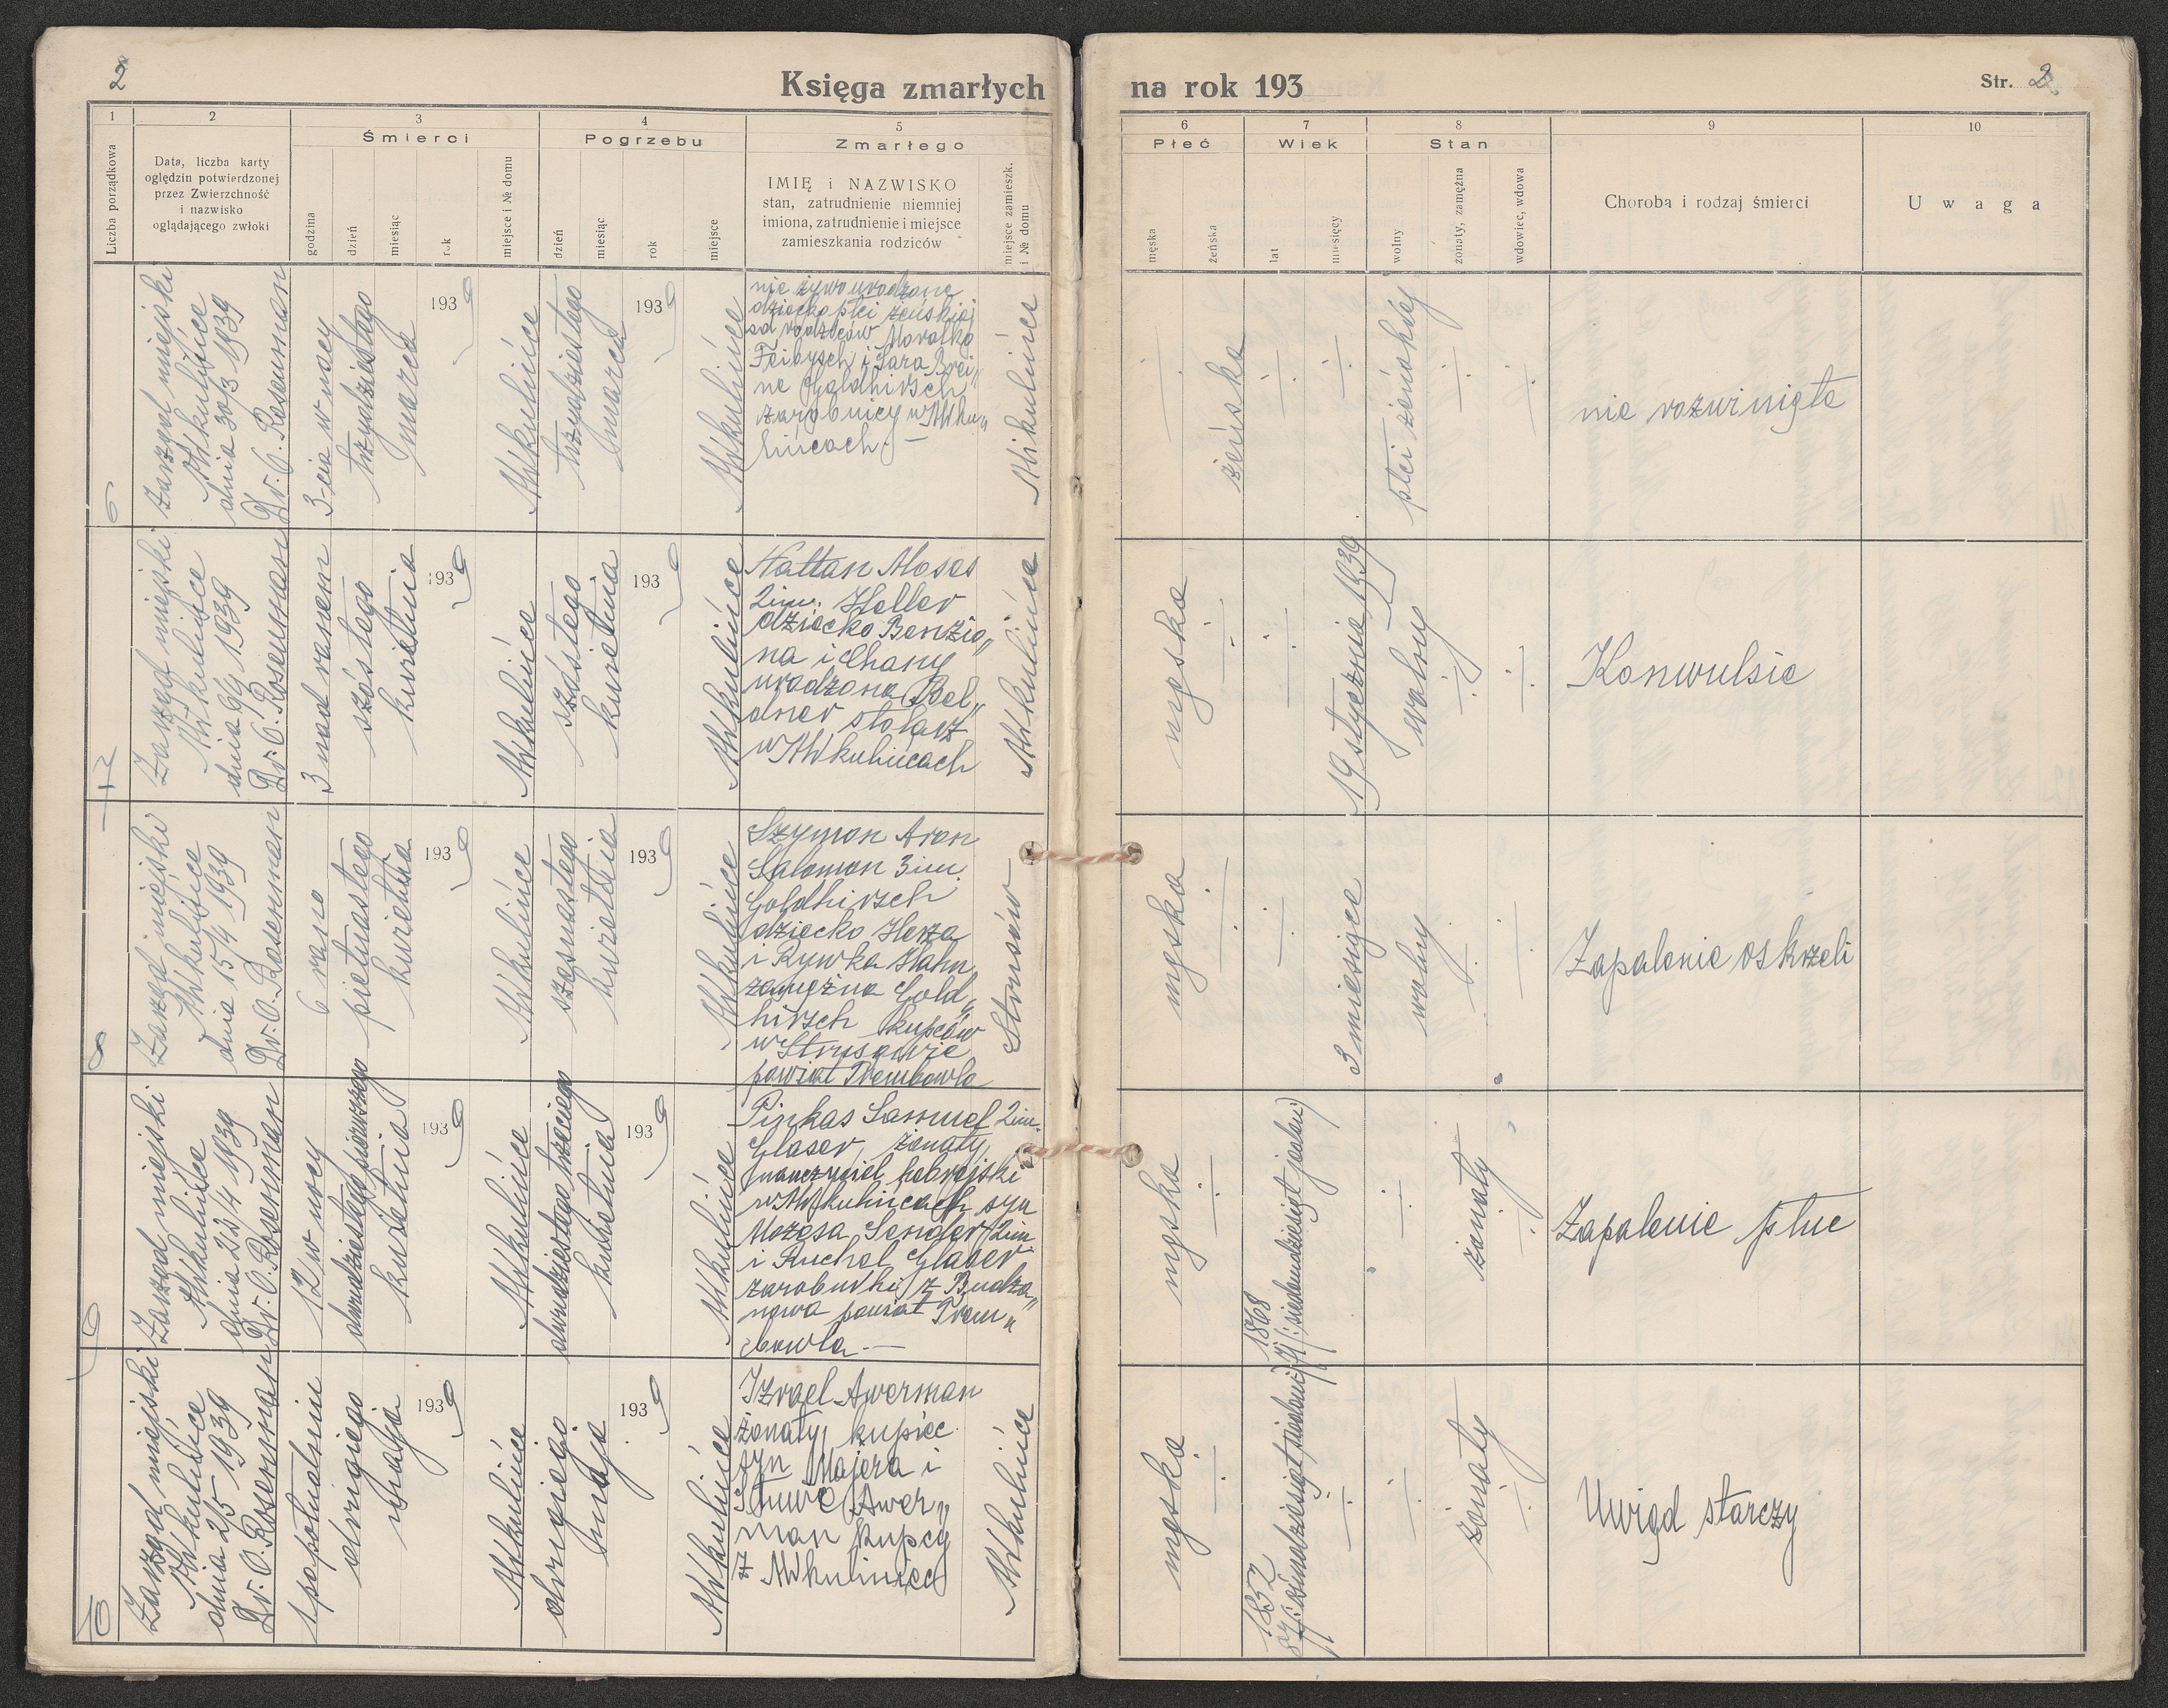 2
Księga zmarłych
na rok 193
Str. 2
1
2
3
4
5
6
7
8
9
10
Liczba porządkowa
Data, liczba karty
oględzin potwierdzonej
przez Zwierzchność
i nazwisko
oglądającego zwłoki
Śmierci
godzina
dzień
miesiąc
rok
miejsce i № domu
Pogrzebu
dzień
miesiąc
rok
miejsce
Zmarłego
IMIĘ i NAZWISKO
stan, zatrudnienie niemniej
imiona, zatrudnienie i miejsce
zamieszkania rodziców
miejsce zamieszk.
i № domu
Płeć
męska
żeńska
Wiek
lat
miesięcy
Stan
wolny
żonaty, zamężna
wdowiec, wdowa
Choroba i rodzaj śmierci
Uwaga
6
Zarząd miejski
Mikulińce
dnia 30/3 1939
Dr. O. Rosenman
3-cia w nocy
trzydziestego
marca
1939
Mikulińce
trzydziestego
marca
1939
Mikulińce
nie żywo urodzone
dziecko płci żeńskiej
od rodziców Moralka
Feibysch i Sara Brei„
ne Goldhirsch
zarobnicy w Miku„
lińcach. —
Mikulińce
żeńska
płci żeńskiej
nie rozwinięte
7
Zarząd miejski
Mikulińce
dnia 6/4 1939
Dr. O. Rosenman
3 nad ranem
szóstego
kwietnia
1939
Mikulińce
szóstego
kwietnia
1939
Mikulińce
Nattan Moses
2im. Heller
dziecko Benzio„
na i Chany
urodzona Bel„
dner stolarz
w Mikulińcach
Mikulińce
męska
19 stycznia 1939.
wolny
Konwulsie
8
Zarząd miejski
Mikulińce
dnia 15/4 1939
Dr. O. Rosenman
6 rano
piętnastego
kwietnia
1939
Mikulińce
szesnastego
kwietnia
1939
Mikulińce
Szymon Aron
Salomon 3im.
Goldhirsch
dziecko Herza
i Rywka Hahn
zamężna Gold„
hirsch kupców
w Strusowie
powiat Trembowla
Strusów
męska
3 miesiące
wolny
Zapalenie oskrzeli
9
Zarząd miejski
Mikulińce
dnia 23/4 1939
Dr. O. Rosenman
12 w nocy
dwudziestego pierwszego
kwietnia
1939
Mikulińce
dwudziestego trzeciego
kwietnia
1939
Mikulińce
Pinkas Samuel 2im.
Glaser, żonaty,
nauczyciel hebrajski
w Mikulińcach syn
Mozesa Sender 2im
i Ruchel Glaser
zarobnki z Budza„
nowa powiat Trem„
bowla. —
męska
1868
71 /: siedemdziesiąt jeden :/
żonaty
Zapalenie płuc
10
Zarząd miejski
Mikulińce
dnia 2/5 1939
Dr. O. Rosenman
1 popołudniu
drugiego
maja
1939
Mikulińce
drugiego
maja
1939
Mikulińce
Izrael Awerman
żonaty, kupiec
syn Majera i
Awer„
man kupcy
z Mikuliniec
Mikulińce
męska
1852
żonaty
Uwiąd starczy